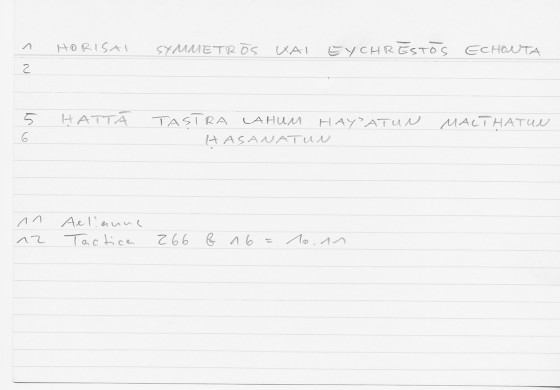 1 HORISAI SYMMETRŌS KAI EYCHRĒSTŌS ECHONTA
2
5 ḤATTĀ TAṢĪRA LAHUM HAY'ATUN MALĪḤATUN
6 ḤASANATUN
11 Aelianus
12 Tactica 266 B 16 = 10.11